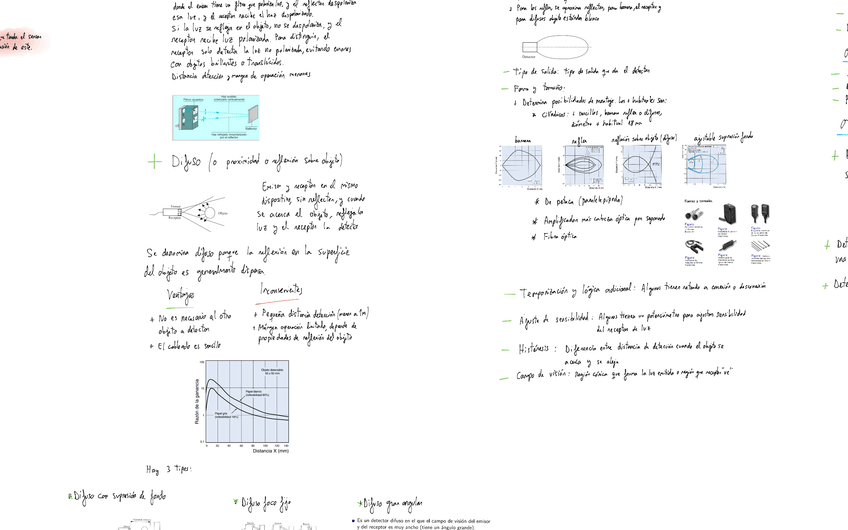 donde el emisor tiene un filtro que polariza luz, y el reflector despolariza
esa luz, y el receptor recibe el haz despolarizado.
Si la luz se refleja en el objeto, no se despolariza, y el
receptor recibe luz polarizada. Para distinguir, el
receptor solo detecta la luz no polarizada, evitando errores
con objetos brillantes o translúcidos.
Distancia detección y margen de operación menores
+ Difuso (o proximidad o reflexión sobre objeto)
Emisor y receptor en el mismo
dispositivo, sin reflector, y cuando
se acerca el objeto, refleja la
luz y el receptor la detecta
Emisor
Receptor
Objeto
Se denomina difuso porque la reflexión en la superficie
del objeto es generalmente dispersa
Ventajas
+ No es necesario al otro
objeto a detectar
+ El cableado es sencillo
Inconvenientes
+ Pequeña distancia detección (menor a 1m)
+ Márgen operación limitado, depende de
propiedades de reflexión del objeto
Razón de la ganancia
100
10
1
0.1
Papel blanco
Papel gris
0 20 40 60 80 100 120 140
Distancia X (mm)
Hay 3 tipos:
Difuso con supresión de fondo
Difuso foco fijo
Difuso gran angular
Es un detector difuso en el que el campo de visión del emisor
y del receptor es muy ancho (tiene un ángulo grande).
2 Para los reflex, se aproxima reflector, para barrera, el receptor y
para difusos objeto estándar blanco
Detector
— Tipo de salida: tipo de salida que da el detector
— Forma y tamaño:
+ Determina posibilidades de montaje. Los + habituales son:
* Cilíndricos: + sencillos, barrera reflex o difusos,
diámetro + habitual 18 mm
barrera
reflex
reflexión sobre objeto (difuso)
ajustable supresión fondo
* De petaca (paralelepípeda)
* Amplificador más cabeza óptica por separado
* Fibra óptica
Forma y tamaño.
— Temporización y lógica adicional: Algunos tienen retardo a conexión o desconexión
— Ajuste de sensibilidad: Algunos tienen un potenciómetro para ajustar sensibilidad
del receptor de luz
— Histéresis: Diferencia entre distancia de detección cuando el objeto se
acerca y se aleja
— Campo de visión: Región cónica que forma la luz emitida o región que receptor "ve"